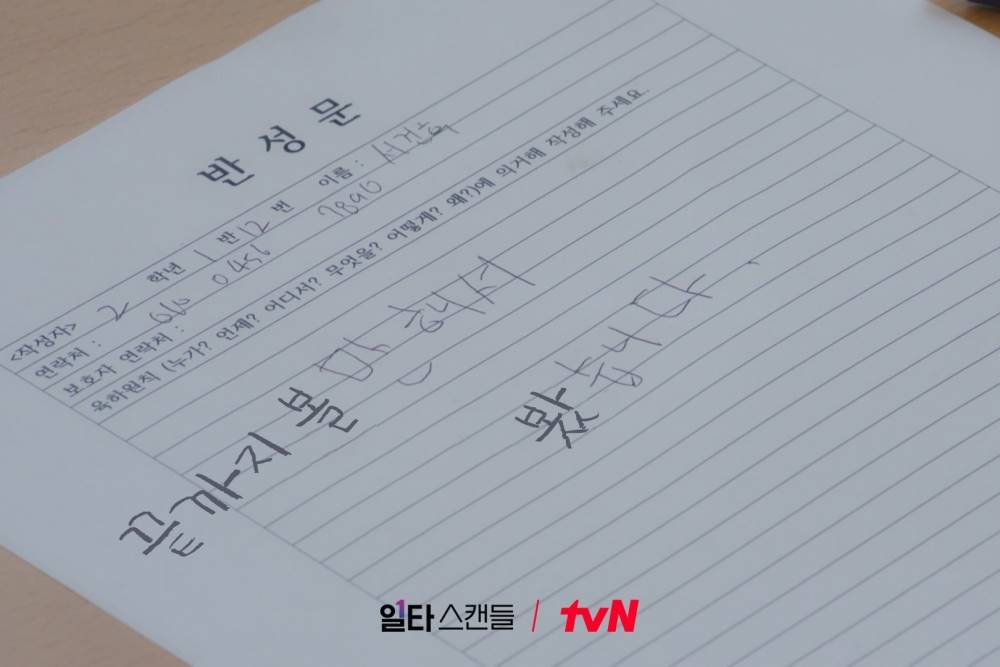 반성문
<작성자> 2 학년 1 반 12 번 이름 : 서건후
연락처 : 010 0456 7890
보호자 연락처 :
육하원칙 (누가? 언제? 어디서? 무엇을? 어떻게? 왜?)에 의거해 작성해 주세요.
끝까지 몰 해서
봤습니다.
일타스캔들 / tvN